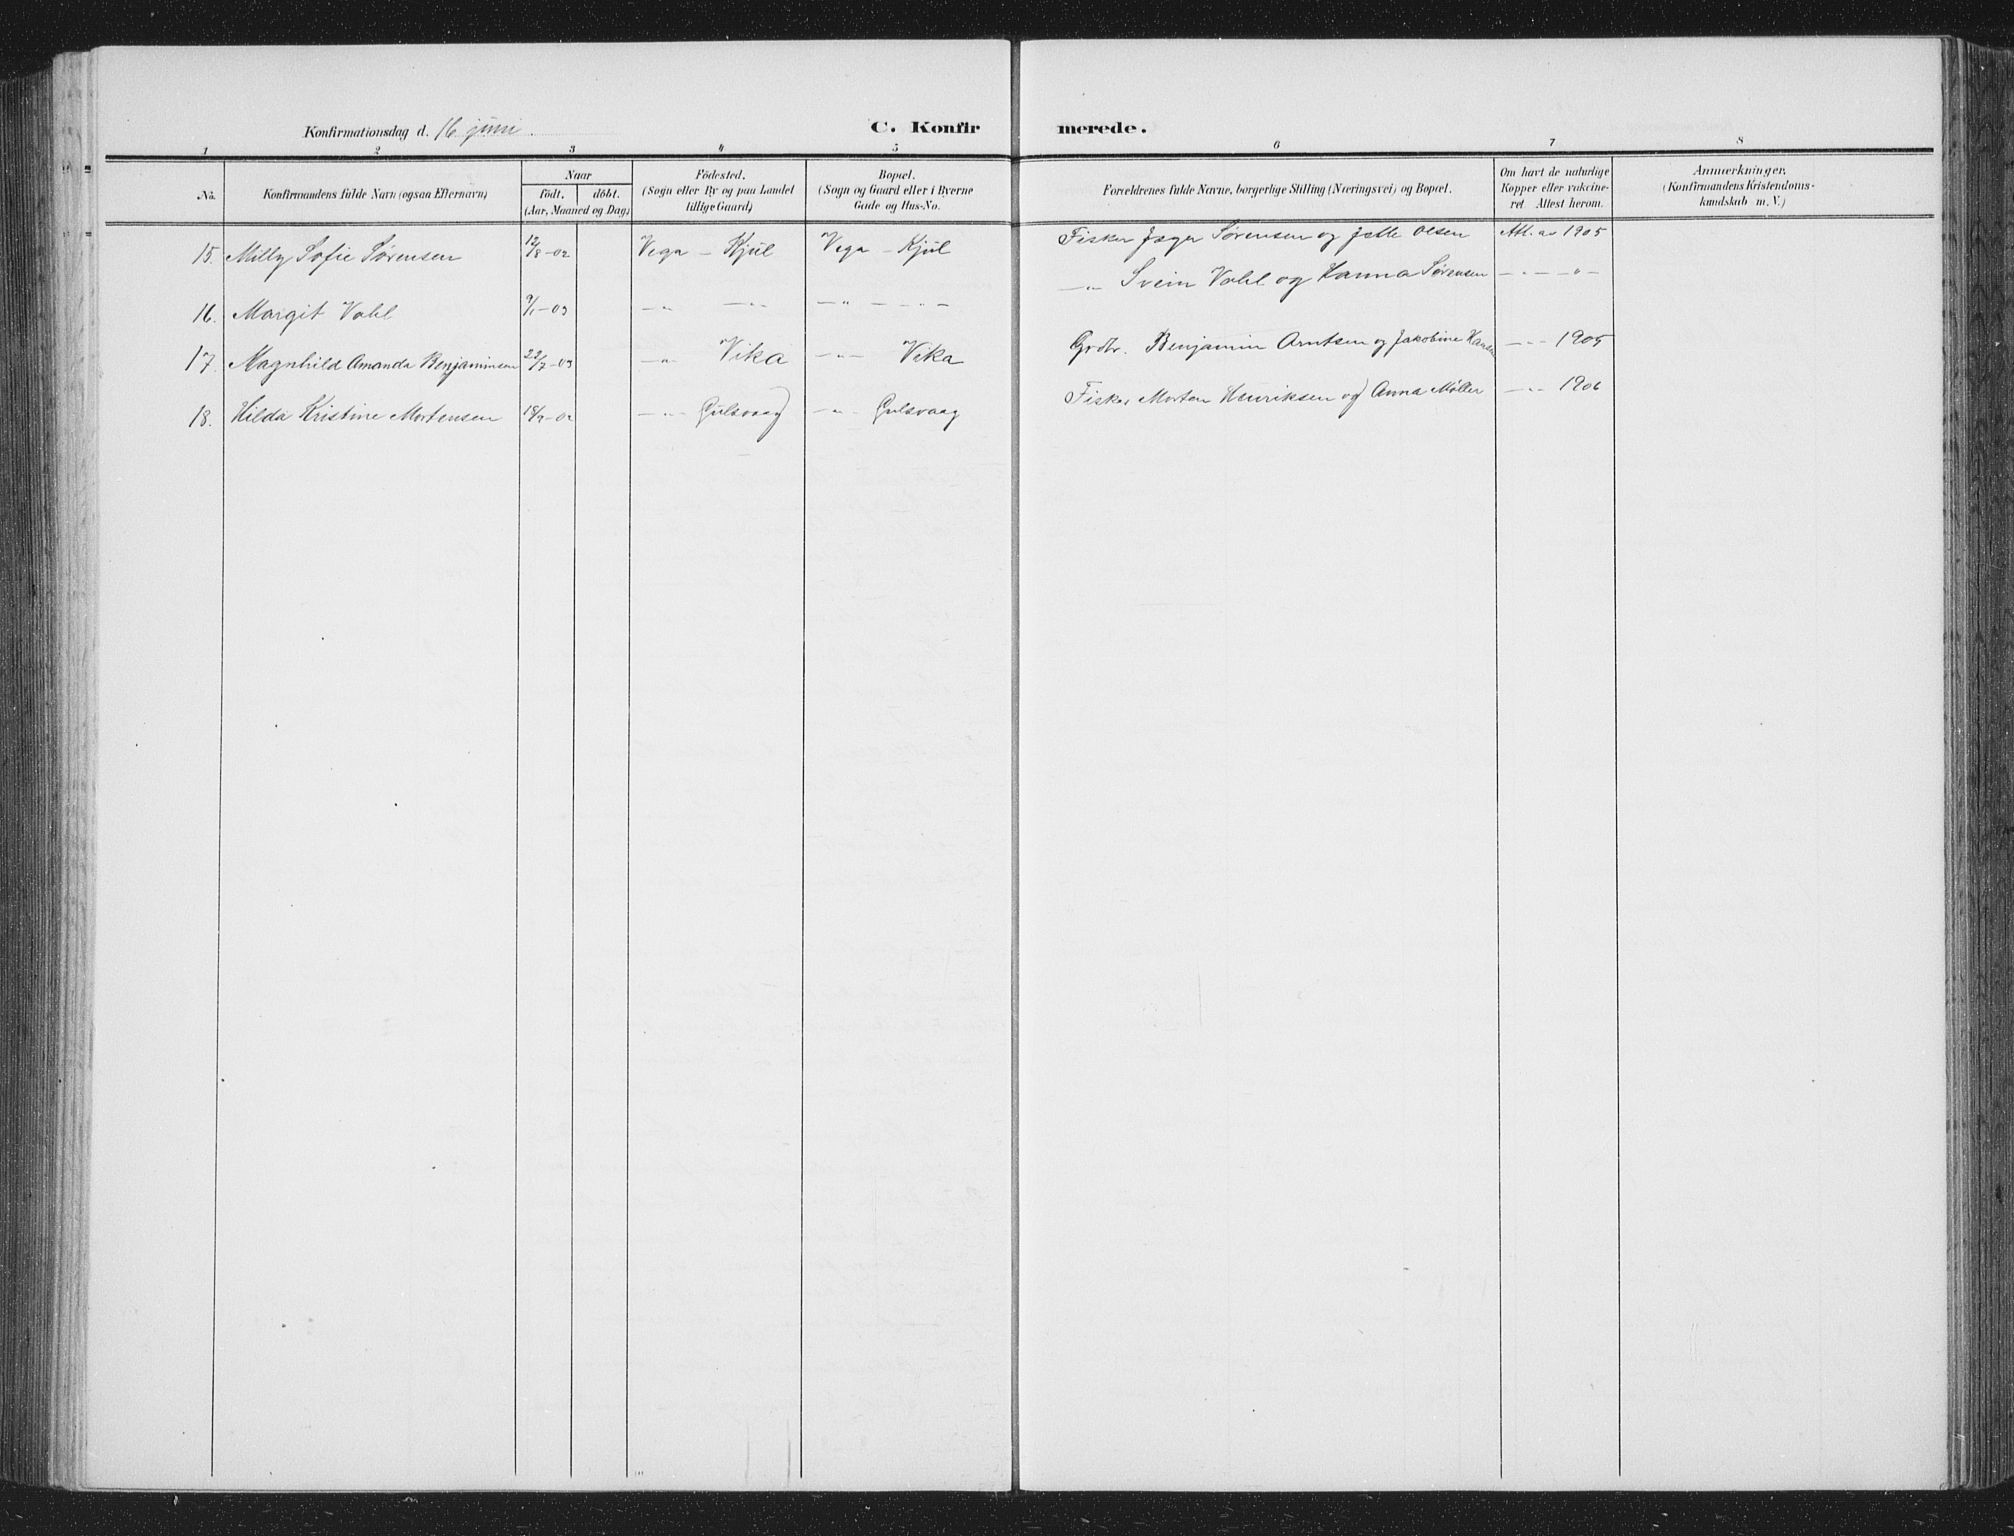 Konfirmationsdag d. 16 juni.
C. Konfir merede.
1 2 3 4 5 6 7 8
No. Konfirmandens fulde Navn (ogsaa Efternavn) Naar födt. döbt. (Aar, Maaned og Dag) Födested. (Sogn eller By og paa Landet tillige Gaard) Bopæl. (Sogn og Gaard eller i Byerne Gade og Hus-No. Forældrenes fulde Navne, borgerlige Stilling (Næringsvei) og Bopæl. Om havt de naturlige Kopper eller vakcineret Attest herom. Anmærkninger. (Konfirmandens Kristendomskundskab m. V.)
15. Milly Sofie Sørensen 12/8-02 Vega - Kjul Vega - Kjul Fisker Jager Sørensen og Jette Olsen Att. av 1905
16. Margit Vahl 9/1-03 -"- -"- -"- -"- -"- Svein Vahl og Hanna Sørensen -"- -"-
17. Magnhild Amanda Benjaminsen 22/7-03 -"- Vika -"- Vika Grdbr. Benjamin Arntsen og Jakobine Hansen -"- 1905
18. Hilda Kristine Mortensen -02 -"- Gulsvaag -"- Gulsvaag Fisker Morten Henriksen og Anna Møller -"- 1906